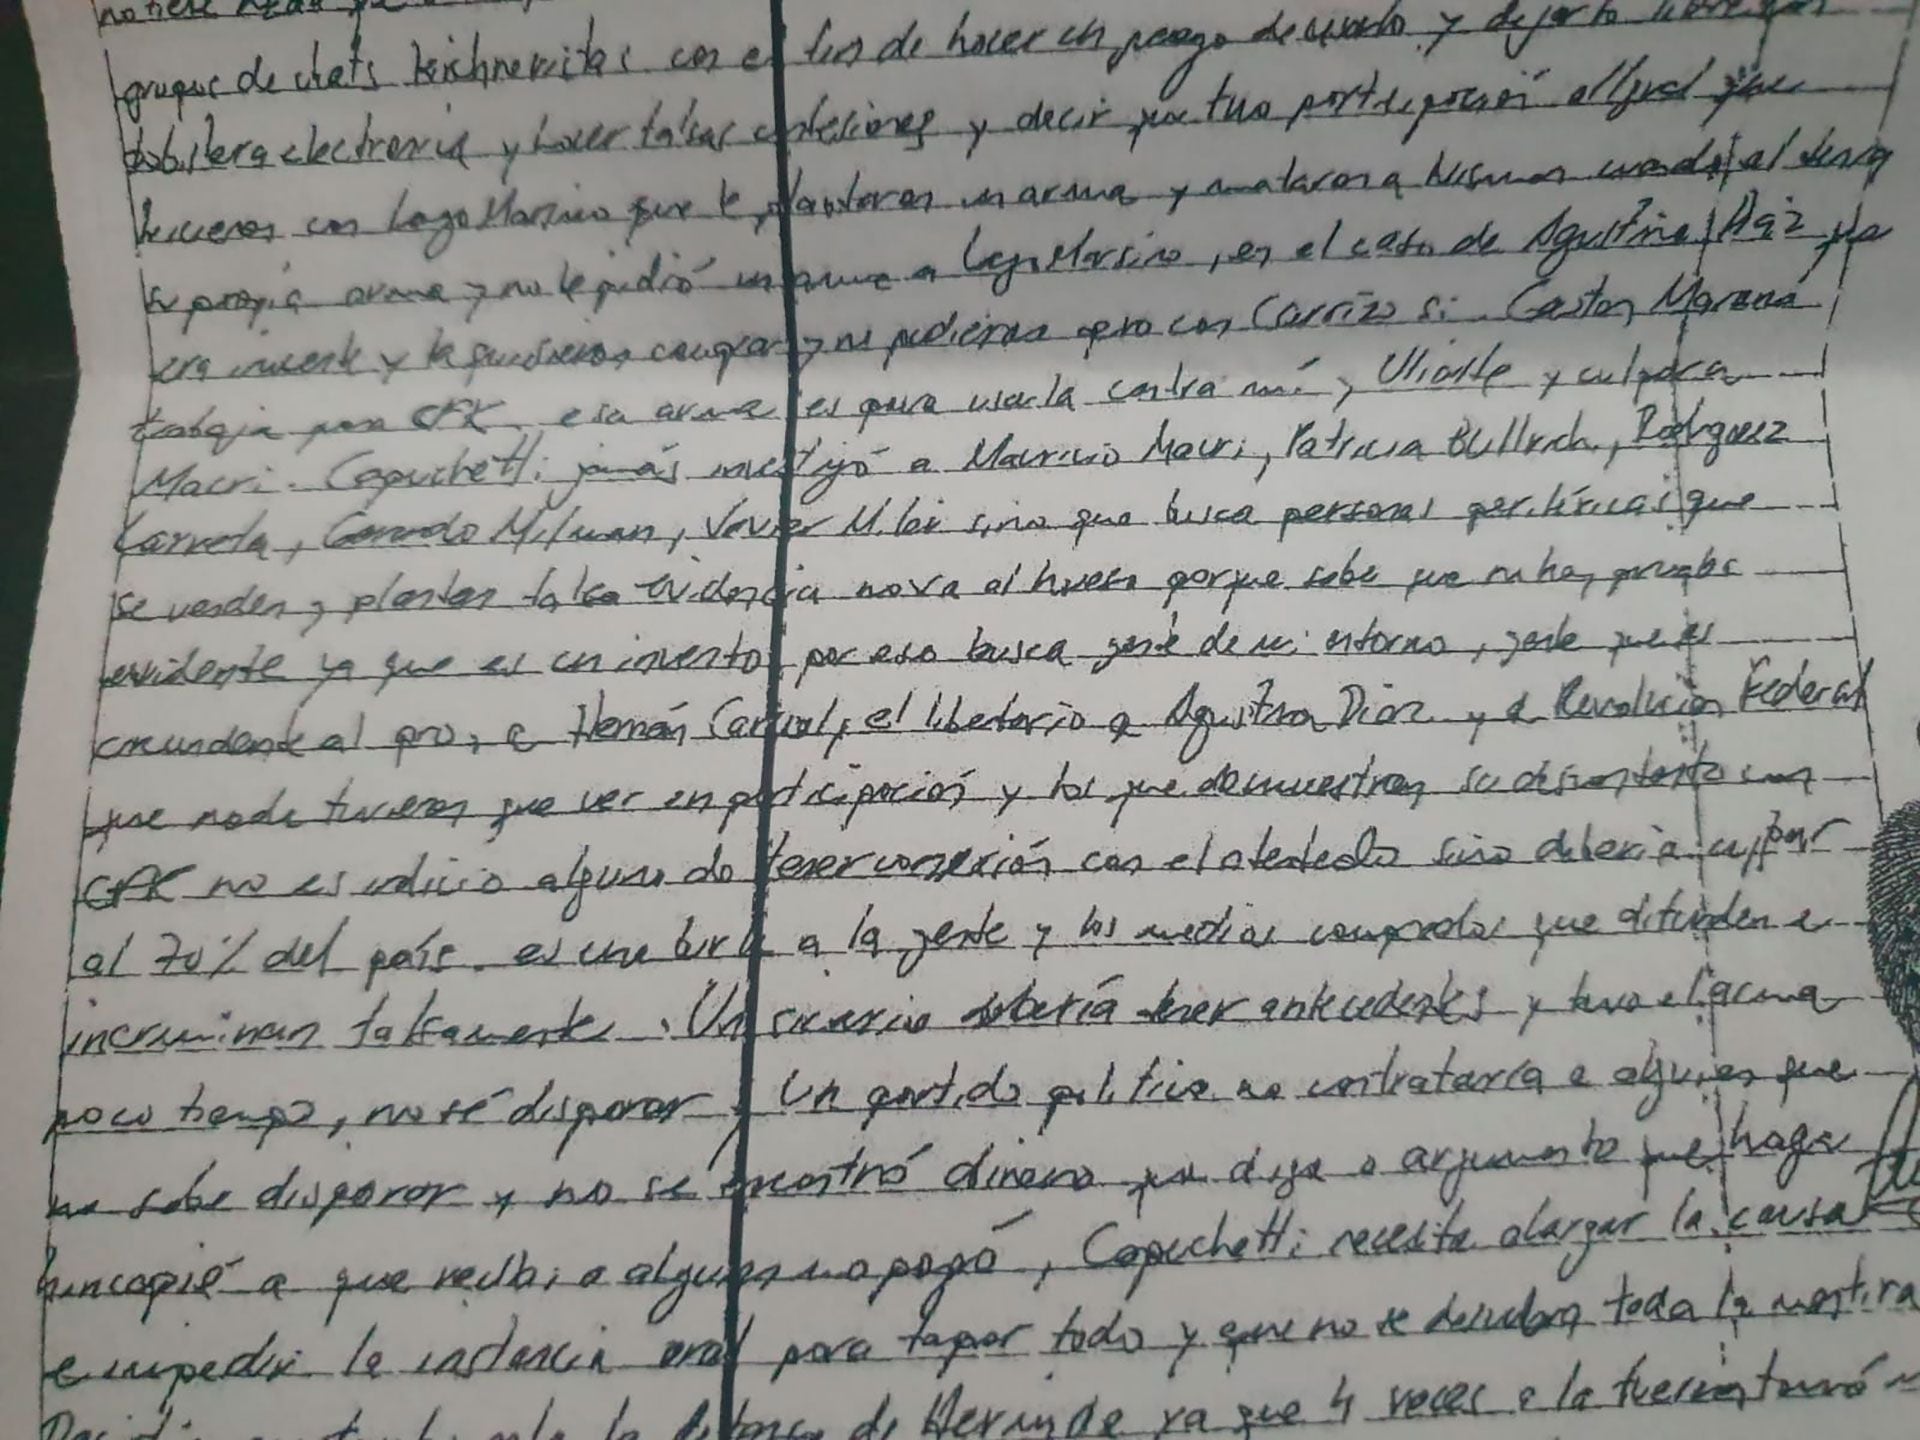 no tiene nada
grupos de chats kirchneristas con el fin de hacer un juego de y dejarlo libre con
tobillera electronica y hacer falsas confesiones y decir que tuvo participación al igual que
hicieron con Lago Marsino que le plantaron un arma y mataron a Nisman cuando él tenia
su propia arma y no le pidió un arma a Lago Marsino, en el caso de Agustina Diaz ella
era inocente y la quisieron comprar y no pudieron pero con Carrizo si. Gaston Marano
trabaja para CFK esa arma es para usarla contra mí, Uliarte y culpar a
Macri. Capuchetti jamás investigó a Mauricio Macri, Patricia Bullrich, Rodriguez
Larreta, Gerardo Milman, Javier Milei sino que busca personas periféricas que
se venden y plantan falsa evidencia no va al hueso porque sabe que no hay prueba
evidente ya que es un invento por eso busca gente de mi entorno, gente que es
al pro, a Hernán Carrol, el libertario a Agustina Diaz y a Revolución Federal
que nada tuvieron que ver en participación y los que demuestran su descontento con
CFK no es indicio alguno de tener conexión con el atentado sino deberia culpar
al 70% del país. es una burla a la gente y los medios comprados que difunden e
incriminan falsamente. Un sicario debería tener antecedentes y tuvo el arma
poco tiempo, no sé disparar, Un partido politico no contrataría a alguien que
no sabe disparar y no se encontró dinero que diga o argumento que haga
hincapié a que recibi o alguien me pagó, Capuchetti necesita alargar la causa
e impedir la instancia oral para tapar todo y que no se descubra toda la mentira
la de ya que 4 veces a la fuerza